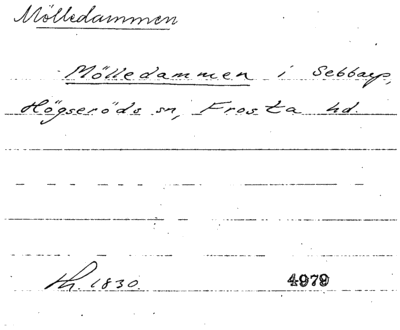 Mölledammen
Mölledammen i Sebbarp,
Högseröds sn, Frosta hd.
th. 1830. 4979